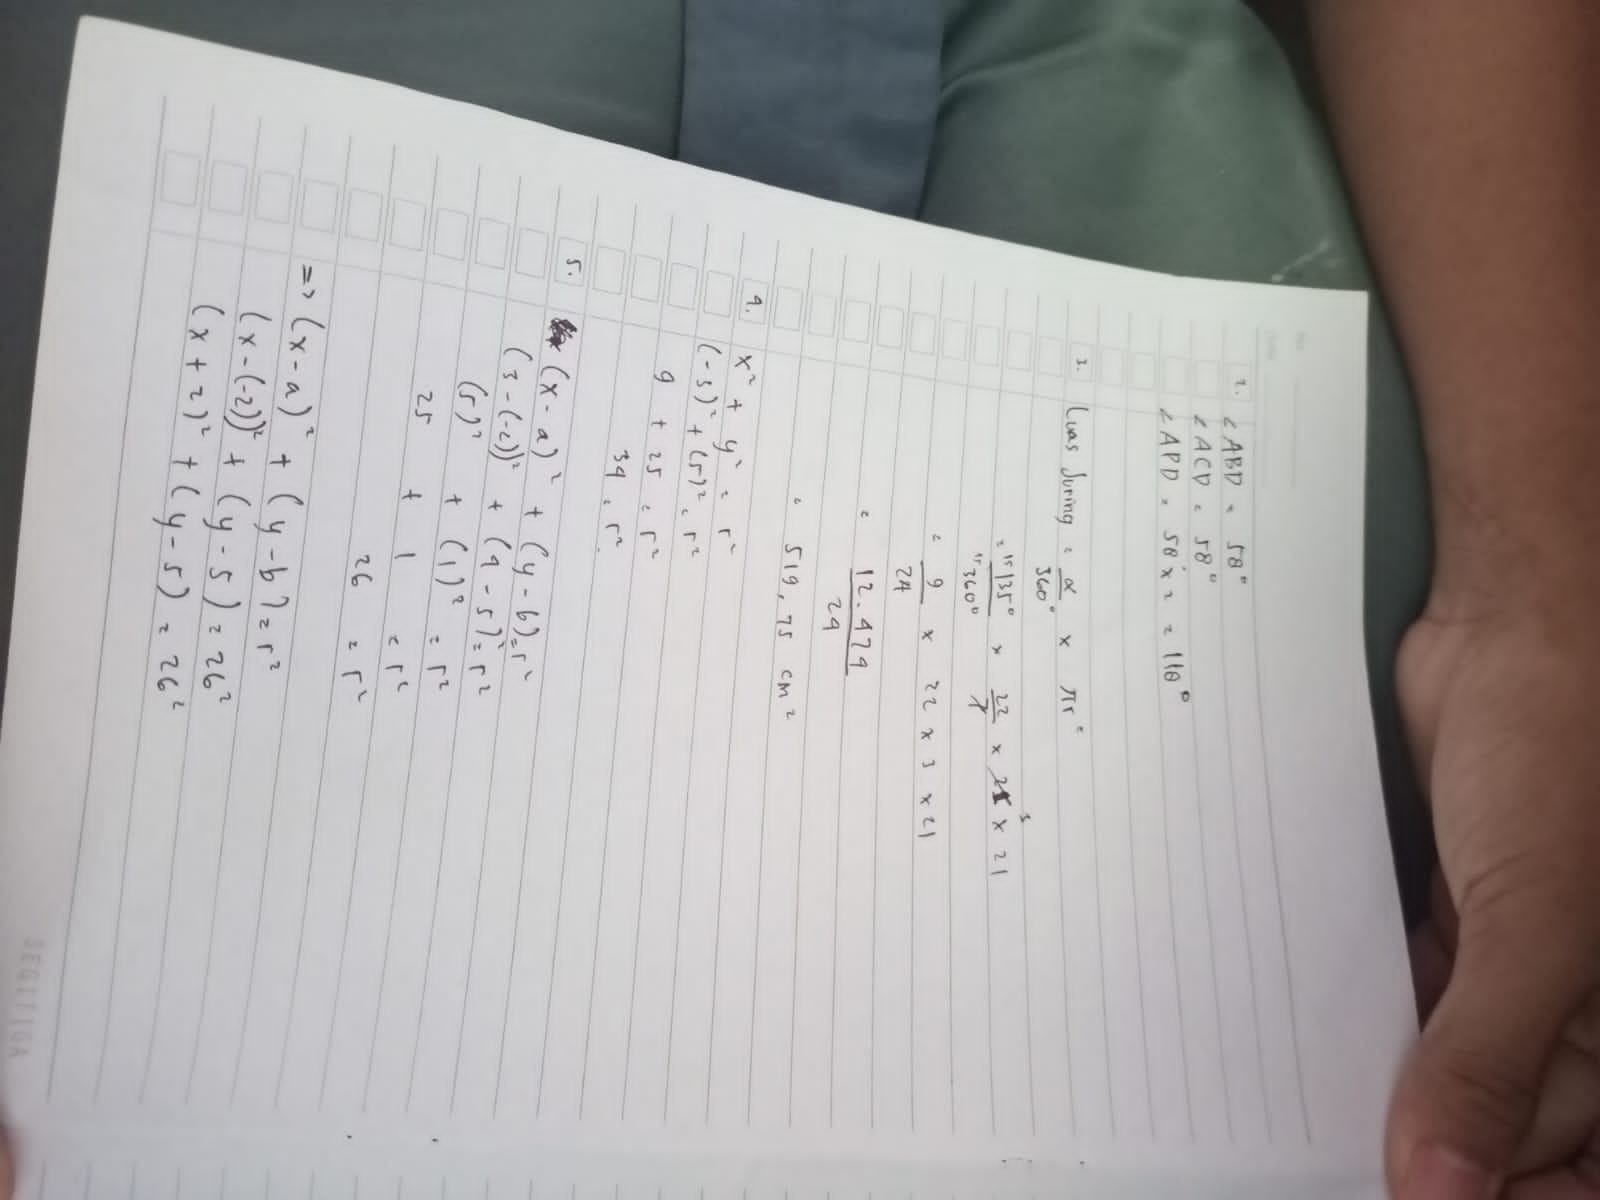 2. ∠ABD = 58°
∠ACD = 58°
∠APD = 58° x 2 = 116°
3. Luas Juring = α/360° x πr²
= 15 135°/15 360° x 22/7 x 21 3 x 21
= 9/24 x 22 x 3 x 21
= 12.474/24
= 519,75 cm²
4. x² + y² = r²
(-3)² + (5)² = r²
9 + 25 = r²
34 = r²
5. (x - a)² + (y - b)² = r²
(3 - (-2))² + (4 - 5)² = r²
(5)² + (1)² = r²
25 + 1 = r²
26 = r²
=> (x - a)² + (y - b) = r²
(x - (-2))² + (y - 5) = 26²
(x + 2)² + (y - 5) = 26²